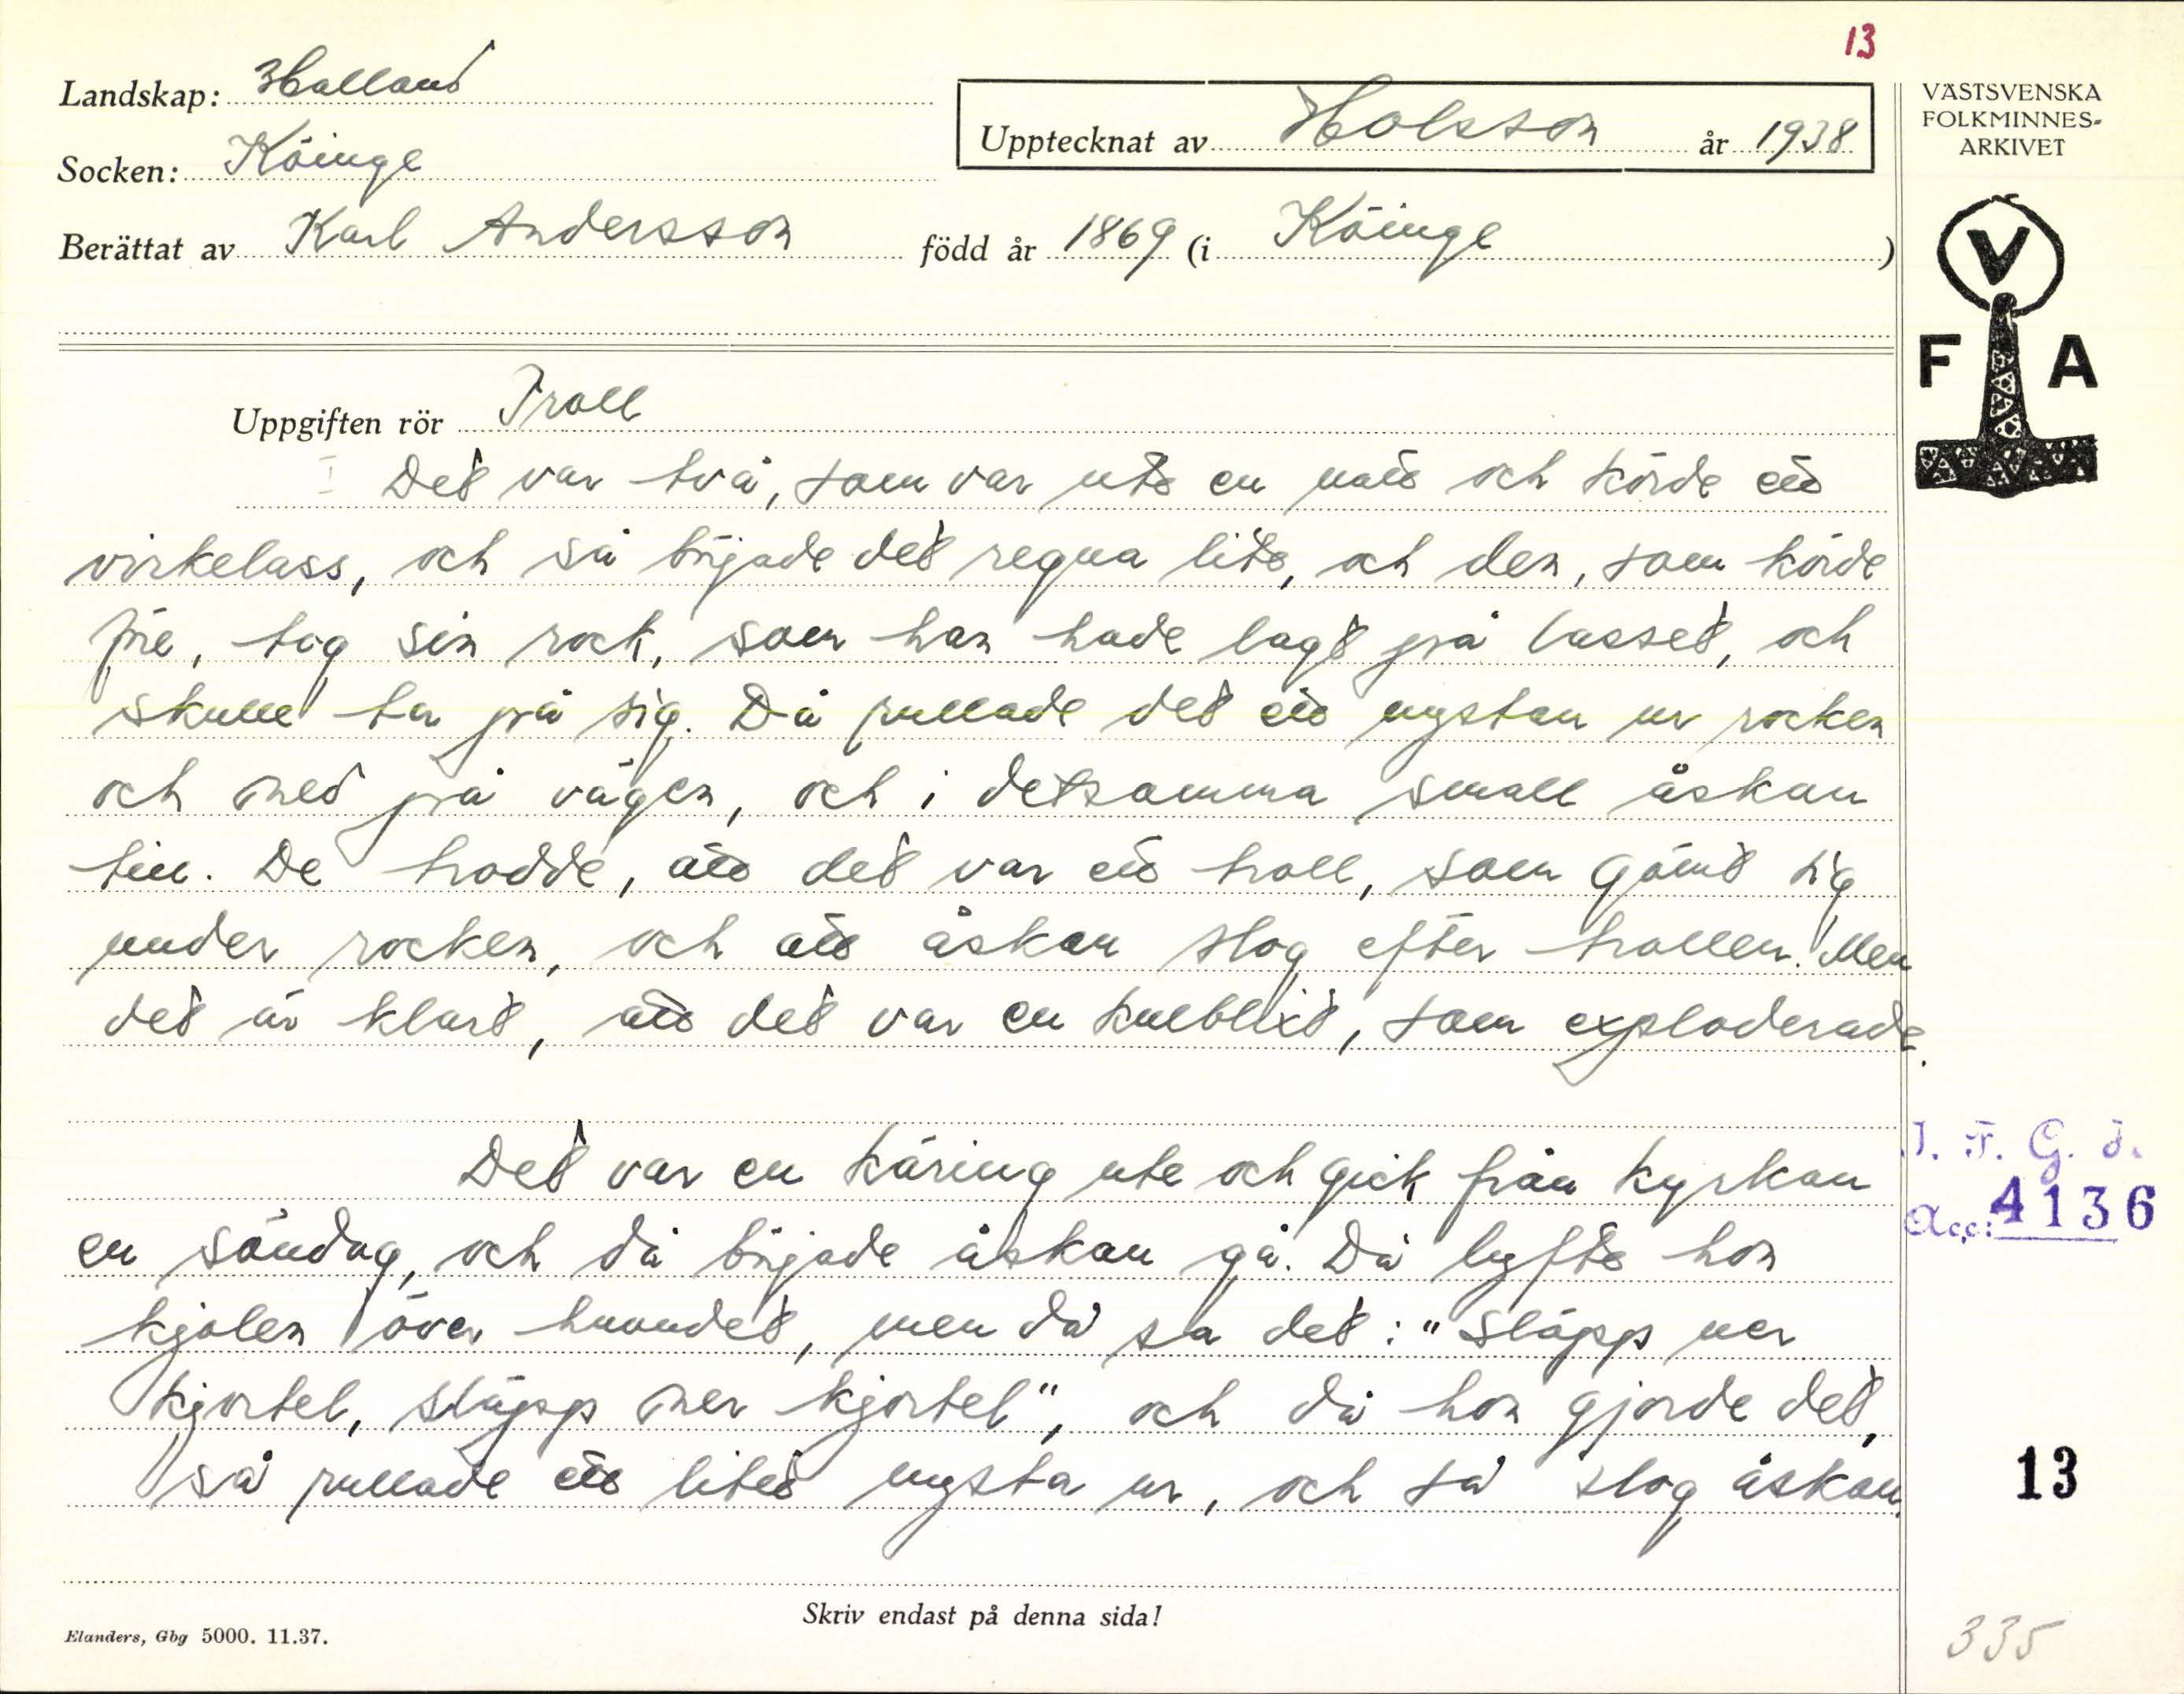 13
Landskap: Halland
Upptecknat av Holsson år 1938
Socken: Köinge
Berättat av Karl Andersson född år 1869 (i Köinge)
VÄSTSVENSKA
FOLKMINNES-
ARKIVET
V
F A
Uppgiften rör Troll
Det var två, som var ute en natt och körde ett
virkelass, och så började det regna lite, och den, som körde
före, tog sin rock, som han hade lagt på lasset, och
skulle ta på sig. Då rullade det ett nystan ur rocken
och ned på vägen, och i detsamma small åskan
till. De trodde, att det var ett troll, som gömt sig
under rocken, och att åskan slog efter trollen. Men
det är klart, att det var en kulblixt, som exploderade.
Det var en käring ute och gick från kyrkan
en söndag, och då började åskan gå. Då lyfte hon
kjolen över huvudet, men då sa det: "Släpp ner
kjortel, släpp ner kjortel", och då hon gjorde det,
så rullade ett litet nysta ur, och så slog åskan.
I. F. G. H.
Acc: 4136
13
Skriv endast på denna sida!
Elanders, Gbg 5000. 11.37.
335